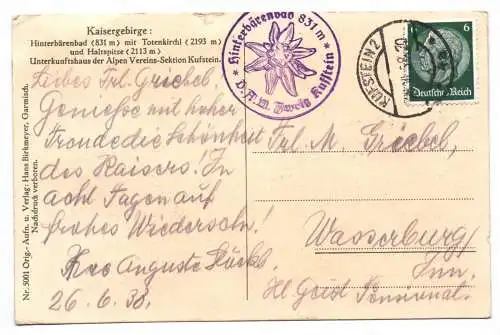 Kaisergebirge:
Hinterbärenbad (831 m) mit Totenkirchl (2193 m)
und Haltspitze (2113 m)
Unterkunftshaus der Alpen Vereins-Sektion Kufstein.
Hinterbärenbad 831 m
D.A.V. Zweig Kufstein
KUFSTEIN 2
6
Deutsches Reich
Liebes Frl. Griebel,
Genieße mit hoher
Freude die Schönheit
des Kaisers! In
acht Tagen auf
frohes Wiedersehn!
Auguste
26.6.38.
Frl. M. Griebel,
Wasserburg
Inn.
Hl Geist
Nr. 5001 Orig.- Aufn. u. Verlag: Hans Birkmeyer, Garmisch.
Nachdruck verboten.